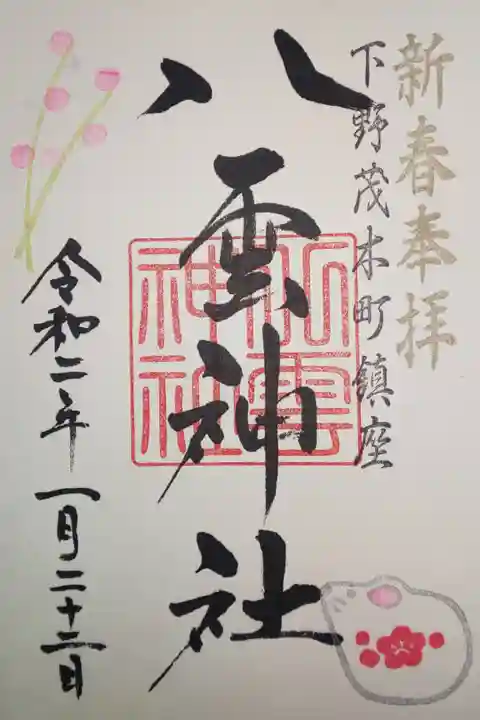 新春奉拝
下野茂木町鎮座
八雲神社
八雲神社
令和二年一月二十二日